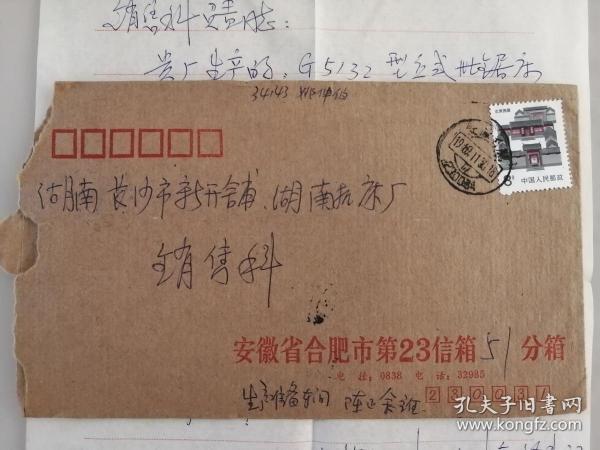 销售科负责同志：
贵厂生产的：G5132型立式带锯床
北京民居
8分
中国人民邮政
湖南长沙市新开铺、湖南机床厂
销售科
安徽省合肥市第23信箱51分箱
电挂：0838 电话：32985
生产准备车间
230031
孔夫子旧书网
www.kongfz.com